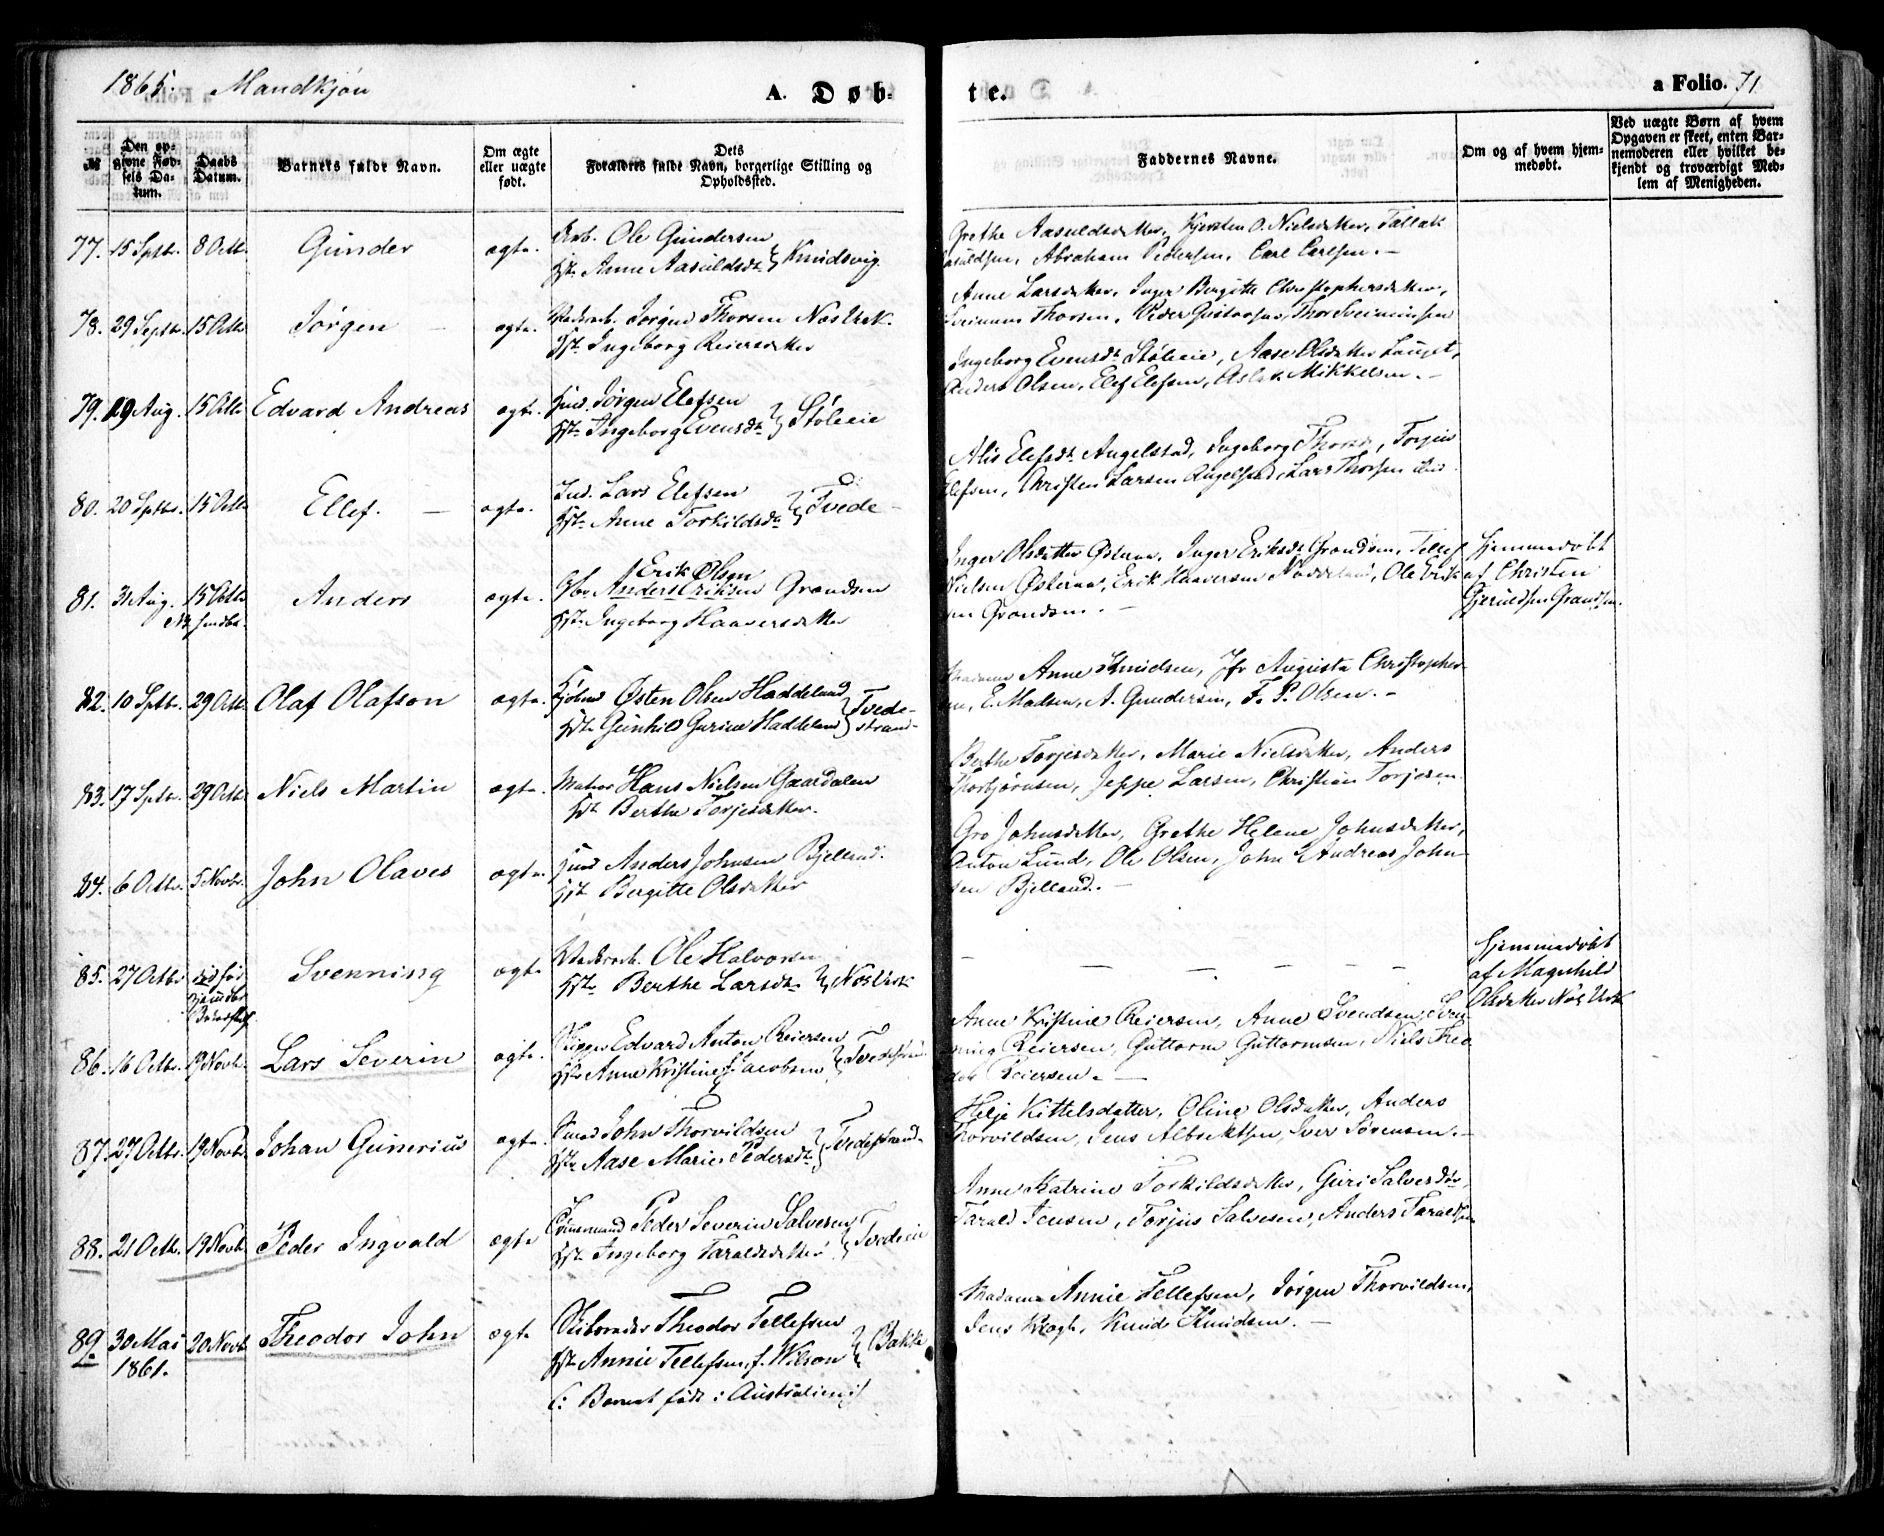 1865. Mandkjøn
A. Døb-
te.
a Folio. 71
№
Den op-
givne Fød-
sels Da-
tum.
Daabs
Datum.
Barnets fulde Navn.
Om ægte
eller uægte
født.
Dets
Forældres fulde Navn, borgerlige Stilling og
Opholdssted.
Faddernes Navne.
Om og af hvem hjem-
medøbt.
Ved uægte Børn af hvem
Opgaven er skeet, enten Bar-
nemoderen eller hvilket be-
kjendt og troværdigt Med-
lem af Menigheden.
77. 15 Septbr. 8 Octb. Gunder ægte. Arb. Ole Gundersen
Hst. Anne Aasuldsdt. } Knudsvig.
Grethe Aasuldsdatter, Kjersten O. Nielsdatter, Tallak
Aasuldsen, Abraham Pedersen, Carl Carlsen. —
78. 29 Septbr. 15 Octb. Jørgen — ægte. Jørgen Thorsen Næs Værk.
Hst. Ingeborg Reiersdatter
Anne Larsdatter, Inger Bergitte Christophersdatter,
Thorsen, Peder Gustavsen, Thor
79. 19 Aug. 15 Octb. Edvard Andreas ægte. Jørgen Elefsen
Hst. Ingeborg Evensdt. } Støleeie
Ingeborg Evensdt. Støleeie, Aase Olsdatter
Anders Olsen, Elef Elefsen, Aslak Mikkelsen. —
80. 20 Septbr. 15 Octb. Ellef. — ægte. Ind. Lars Elefsen
Hst. Anne Torkildsdt. } Tvede —
Alis Elefsdt. Angelstad, Ingeborg Torjus
Elefsen, Christen Larsen Angelstad, Lars Thorsen
81. 31 Aug. 15 Octb. Anders ægte. Erik Olsen
Gbr. Anders Eriksen Grændsen
Hst. Ingeborg Haaversdatter
Inger Olsdatter Østeraa, Inger Eriksdt. Grændsen, Tellef
Nielsen Østeraa, Erik Haaversen Ole Erik-
sen Grændsen. —
Hjemmedøbt
af Christen
Gjeruldsen Grændsen.
82. 10 Septbr. 29 Octb. Olaf Olafson ægte. Kjøbmd. Østen Olsen Haddeland
Hst. Gunhild Gurine Haddeland } Tvede-
strand-
Madame Anne Knudsen, Jfr. Augusta Christopher-
sen, E. Madsen, A. Gundersen, F. P. Olsen. —
83. 17 Septbr. 29 Octb. Niels Martin ægte. Matros Hans Nielsen Gaardalen
Hst. Berthe Torjesdatter.
Berthe Torjesdatter, Marie Nielsdatter, Anders
Thorbjørnsen, Jeppe Larsen, Christian Torjesen
84. 6 Octbr. 5 Novbr. John Olaves ægte. Anders Johnsen Bjelland.
Hst. Bergitte Olsdatter
Gro Johnsdatter, Grethe Helene Johnsdatter,
Anton Lund, Ole Olsen, John & Andreas John-
sen Bjelland. —
85. 27 Octbr. Svenning ægte Ole Halvorsen
Hst. Berthe Larsdt. } Næs Værk
— — — — — —
Hjemmedøbt
af Magnhild
Olsdatter Næs Værk
86. 16 Octbr. 19 Novbr. Lars Severin ægte. Edvard Anton Reiersen
Hst. Anne Kristine f. Jacobsen } Tvedestrand
Anne Kristine Reiersen, Anne Svendsen, Sven-
ning Reiersen, Guttorm Guttormsen, Niels Theo-
dor Reiersen. —
87. 27 Octbr. 19 Novbr. Johan Gunerius ægte. John Thorvildsen
Hst. Aase Marie Pedersdt. } Tvedestrand.
Helje Kittelsdatter, Oline Olsdatter, Anders
Thorvildsen, Jens Albrektsen, Iver Sørensen. —
88. 21 Octbr. 19 Novbr. Peder Ingvald ægte Peder Severin Salvesen
Hst. Ingeborg Taraldsdatter } Tvedeeie
Anne Katrine Torkildsdatter, Guri Salvesdtr.
Tarald Jensen, Torjus Salvesen, Anders Taraldsen
89. 30 Mai
1861. 20 Novbr. Theodor John ægte Theodor Tellefsen
Hst. Annie Tellefsen, f. Wilson } Bakke
(: Barnet født i Australien :)
Madame Annie Tellefsen, Jørgen Thorvildsen,
Jens Krogh, Knud Knudsen. —